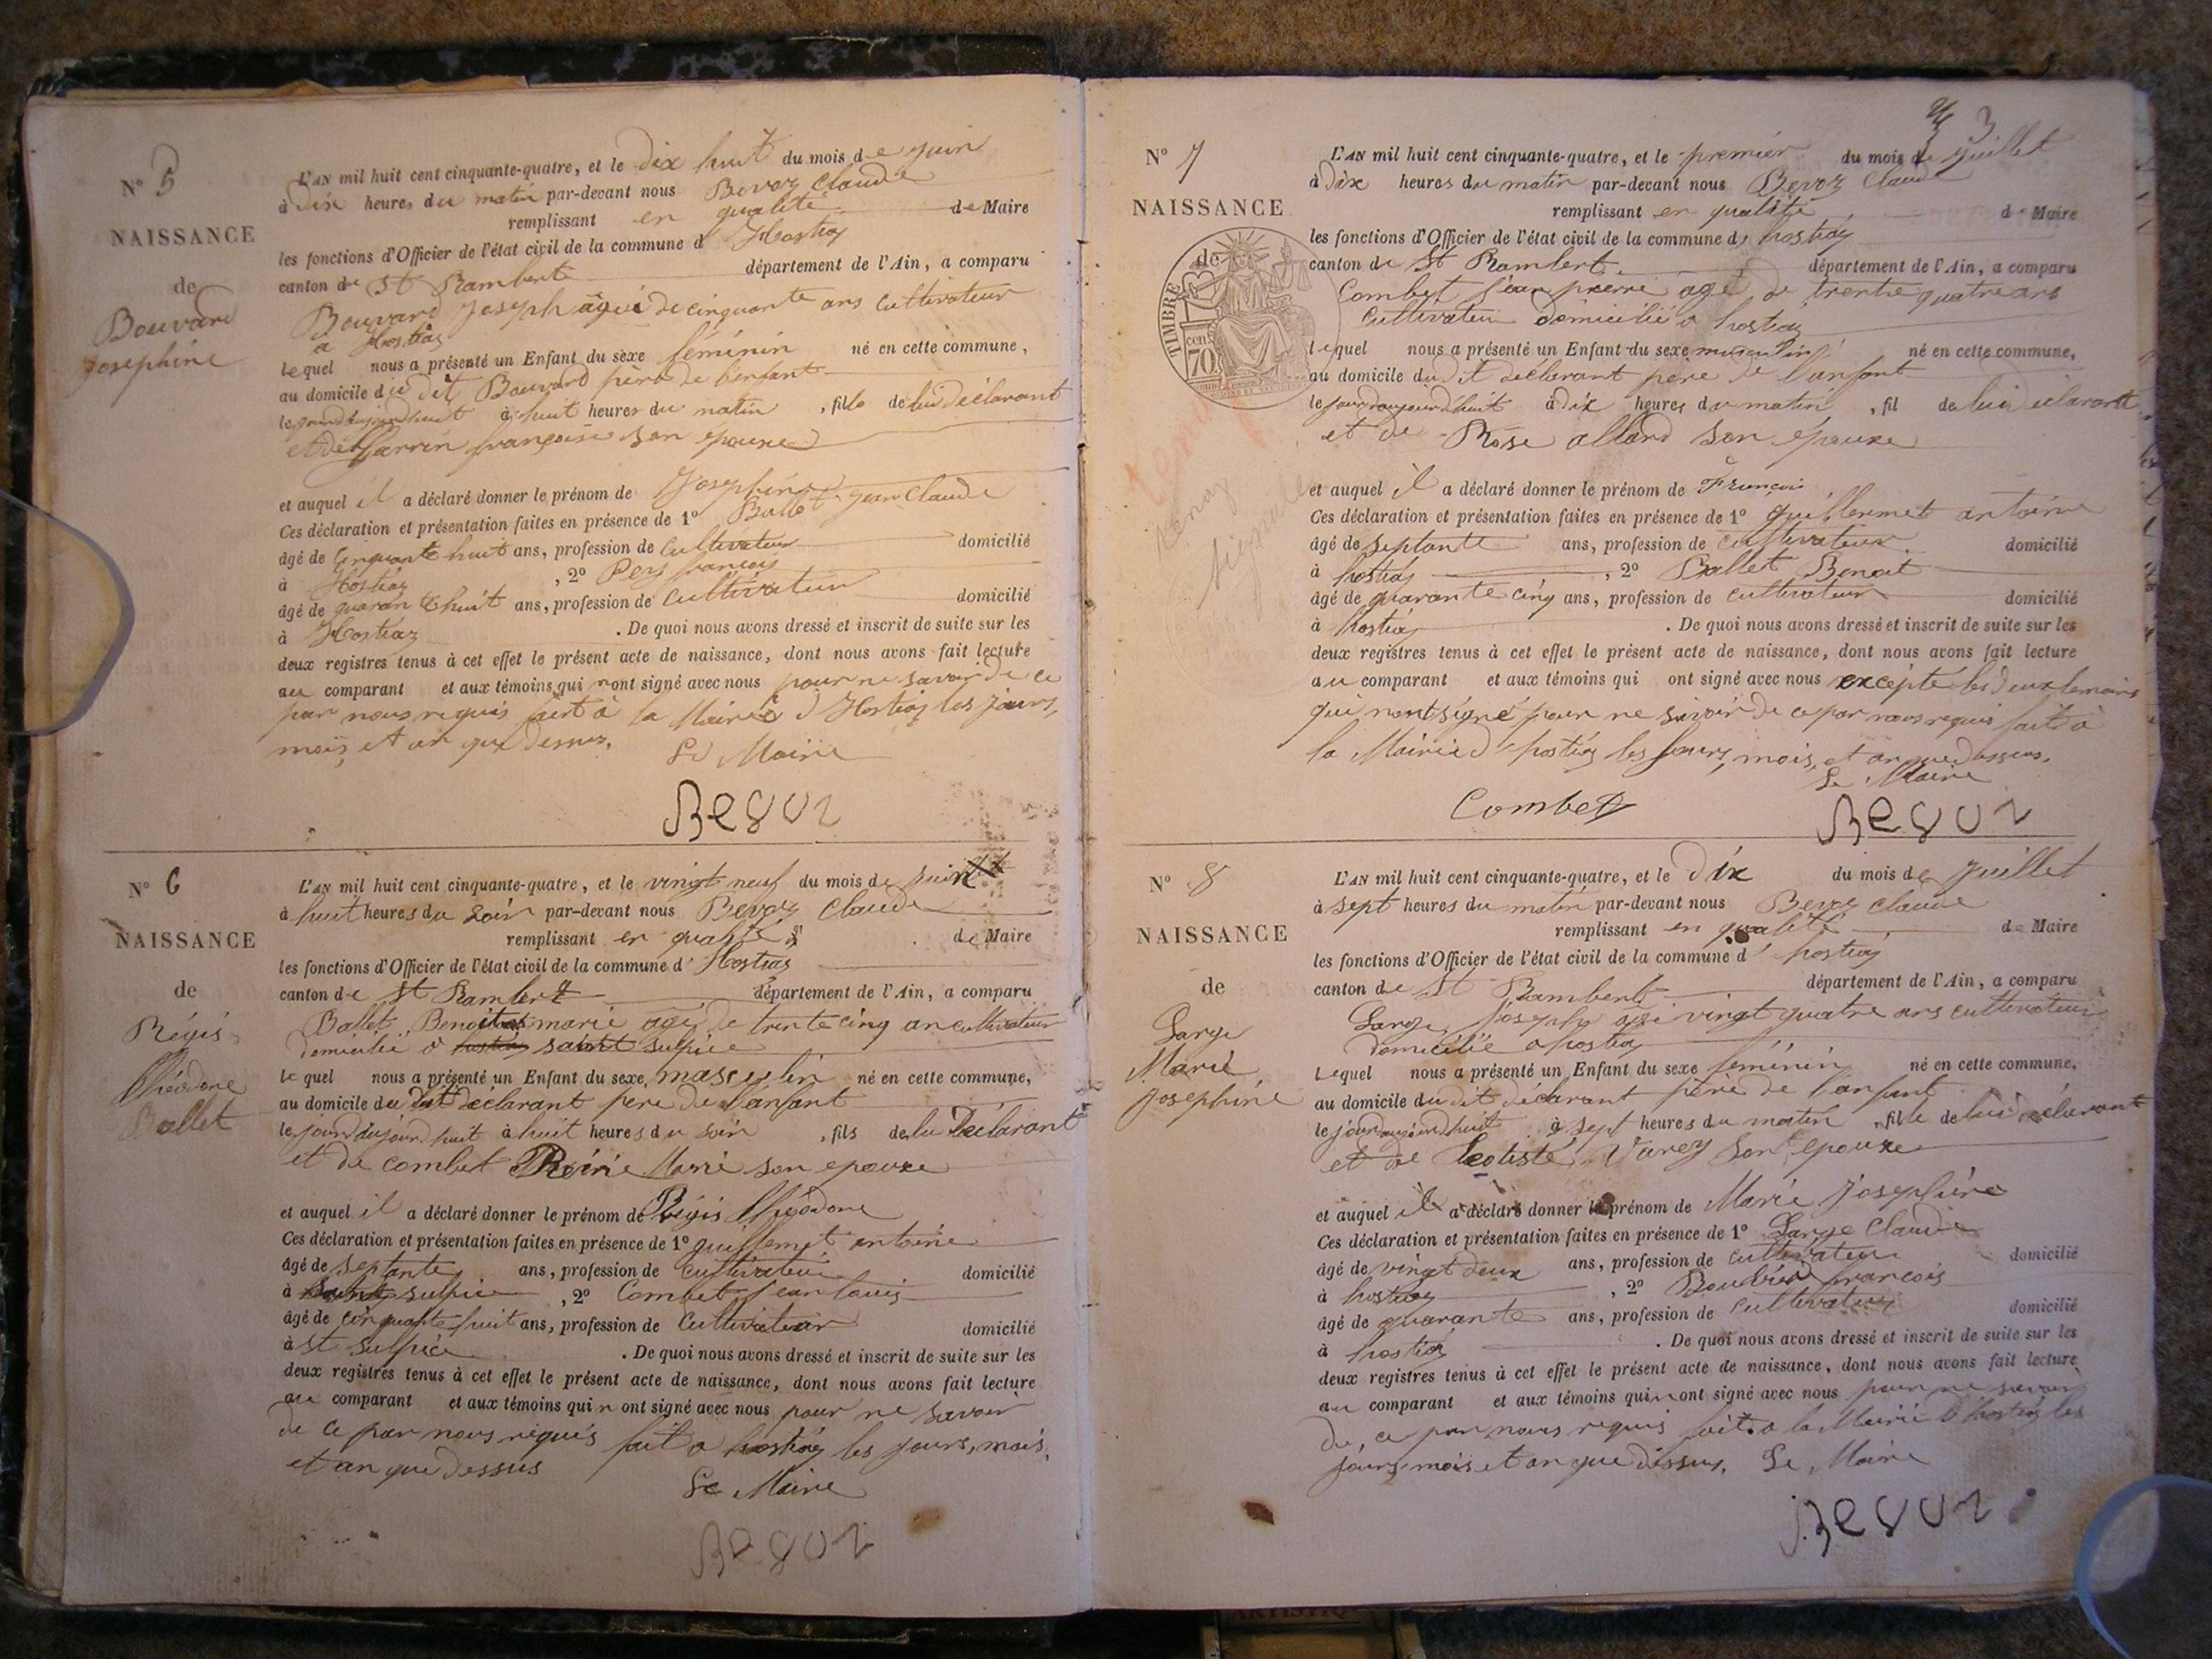 N° 5
NAISSANCE
de
Bouvard
Josephine
L'AN mil huit cent cinquante-quatre, et le dix huit du mois de juin
à Dix heures du matin par-devant nous Bevoz Claude
remplissant en qualité de Maire
les fonctions d'Officier de l'état civil de la commune d' Hostiaz
canton de St Rambert département de l'Ain, a comparu
Bouvard Joseph âgé de cinquante ans cultivateur
a Hostiaz
lequel nous a présenté un Enfant du sexe féminin né en cette commune,
au domicile du dit Bouvard père de l'enfant
le jourdaujourdhuit à huit heures du matin , fille de lui déclarant
et de françoise son épouxe
et auquel il a déclaré donner le prénom de Josephine
Ces déclaration et présentation faites en présence de 1° Ballet jean Claude
âgé de cinquante huit ans, profession de cultivateur domicilié
à Hostiaz , 2° Pery francois
âgé de quarante huit ans, profession de cultivateur domicilié
à Hostiaz . De quoi nous avons dressé et inscrit de suite sur les
deux registres tenus à cet effet le présent acte de naissance, dont nous avons fait lecture
au comparant et aux témoins qui nont signé avec nous pour ne savoir de ce
par nous requis fait à la Mairie d'Hostiaz les jours,
mois, et an que dessus.
Le Maire
Bevoz
N° 6
NAISSANCE
de
Régis
Théodore
Ballet
L'AN mil huit cent cinquante-quatre, et le vingt neuf du mois de juin
à huit heures du soir par-devant nous Bevoz Claude
remplissant en qualité de Maire
les fonctions d'Officier de l'état civil de la commune d' Hostiaz
canton de St Rambert département de l'Ain, a comparu
Ballet Benoit marie agé de trente cinq an cultivateur
domicilié à hostiaz saint sulpice
lequel nous a présenté un Enfant du sexe masculin né en cette commune,
au domicile du dit déclarant père de l'anfant
le jourdaujourdhuit à huit heures du soir , fils de lui Déclarant
et de combet Reine Marie son epouxe
et auquel il a déclaré donner le prénom de Régis Théodore
Ces déclaration et présentation faites en présence de 1° guillermet antoine
âgé de septante ans, profession de cultivateur domicilié
à saint sulpice , 2° Combet jean louis
âgé de cinquante huit ans, profession de Cultivateur domicilié
à st sulpice . De quoi nous avons dressé et inscrit de suite sur les
deux registres tenus à cet effet le présent acte de naissance, dont nous avons fait lecture
au comparant et aux témoins qui n ont signé avec nous pour ne savoir
de ce par nous requis fait a hostiaz les jours, mois,
et an que dessus
Le Maire
Bevoz
3
N° 7
NAISSANCE
de
TIMBRE
70
L'AN mil huit cent cinquante-quatre, et le premier du mois de juillet
à Dix heures du matin par-devant nous Bevoz Claude
remplissant en qualité de Maire
les fonctions d'Officier de l'état civil de la commune d' hostiaz
canton de St Rambert département de l'Ain, a comparu
Combet jean pierre agé de trente quatre ans
Cultivateur domicilié à hostiaz
lequel nous a présenté un Enfant du sexe masculin né en cette commune,
au domicile du dit déclarant père de l'anfant
le jourdaujourdhuit à dix heures du matin , fil de lui déclarant
et de Rose allard son épouxe
et auquel il a déclaré donner le prénom de François
Ces déclaration et présentation faites en présence de 1° guillermet antoine
âgé de septante ans, profession de cultivateur domicilié
à hostiaz , 2° Ballet Benoit
âgé de quarante cinq ans, profession de cultivateur domicilié
à hostiaz . De quoi nous avons dressé et inscrit de suite sur les
deux registres tenus à cet effet le présent acte de naissance, dont nous avons fait lecture
au comparant et aux témoins qui ont signé avec nous excépté les deux temoins
qui nont signé pour ne savoir de ce par nous requis fait à
la Mairie d'hostiaz les jours, mois, et an que dessus.
Le Maire
Combet Bevoz
N° 8
NAISSANCE
de
Large
Marie
Josephine
L'AN mil huit cent cinquante-quatre, et le Dix du mois de juillet
à sept heures du matin par-devant nous Bevoz Claude
remplissant en qualité de Maire
les fonctions d'Officier de l'état civil de la commune d' hostiaz
canton de St Rambert département de l'Ain, a comparu
Large Joseph agé vingt quatre ans cultivateur
domicilié a hostiaz
Lequel nous a présenté un Enfant du sexe féminin né en cette commune,
au domicile du dit déclarant père de l'anfant
le jour aujourdhuit à sept heures du matin , fille de lui déclarant
et de Varey son epouxe
et auquel il a déclaré donner le prénom de Marie Josephine
Ces déclaration et présentation faites en présence de 1° Large Claude
âgé de vingt deux ans, profession de cultivateur domicilié
à hostiaz , 2° Bouvier francois
âgé de quarante ans, profession de cultivateur domicilié
à hostiaz . De quoi nous avons dressé et inscrit de suite sur les
deux registres tenus à cet effet le présent acte de naissance, dont nous avons fait lecture
au comparant et aux témoins qui n ont signé avec nous pour ne savoir
de ce par nous requis fait a la Mairie d'hostiaz les
jours, mois et an que dessus. Le Maire
Bevoz